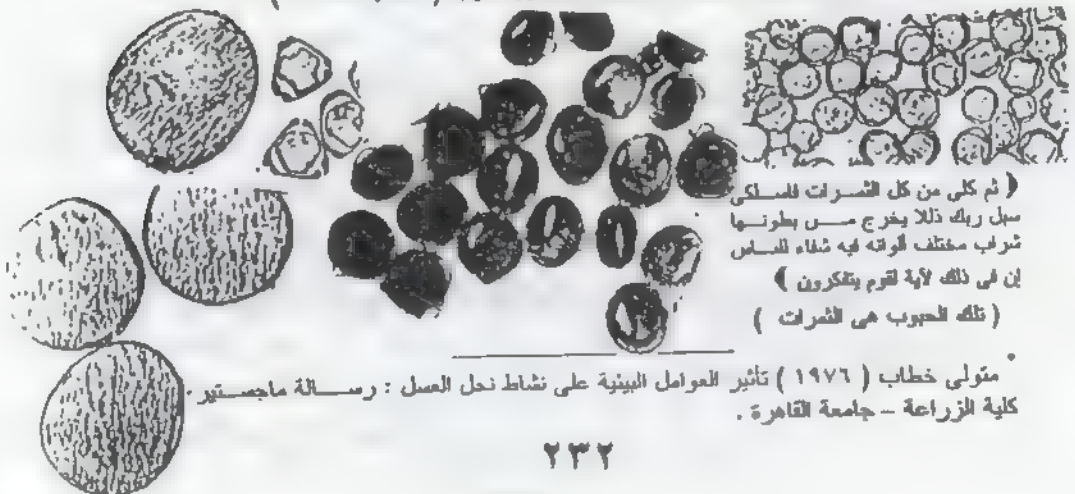 ﴿ ثم كلى من كل الثمرات فاسلكى
سبل ربك ذللا يخرج من بطونها
شراب مختلف ألوانه فيه شفاء للناس
إن فى ذلك لآية لقوم يتفكرون ﴾
( تلك الحبوب هى الثمرات )
* متولى خطاب ( ١٩٧٦ ) تأثير العوامل البيئية على نشاط نحل العسل : رسالة ماجستير .
كلية الزراعة – جامعة القاهرة .
٢٣٢